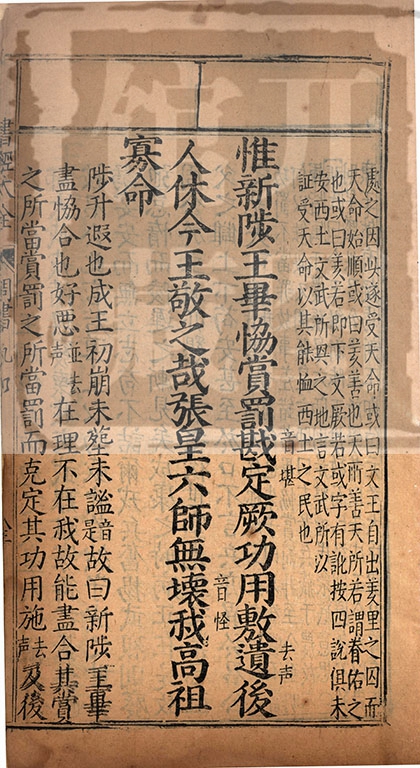 處之因與遂受天命或曰文王自出羑里之囚而
天命始順或曰羑善也天所善天所若謂眷佑之
也或曰羑若即下文厥若或字有訛按四說俱未
安西土文武所興之地言文武所以
証受天命以其能恤西土之民也
惟新陟王畢協賞罰戡定厥功用敷遺後
音堪
去声
人休今王敬之哉張皇六師無壞我高祖
音怪
寡命
陟升遐也成王初崩未塟未謚故曰新陟王畢
音是
盡協合也好惡在理不在我故能盡合其賞
並去声
之所當賞罰之所當罰而克定其功用施及後
去声
書經大全
周書